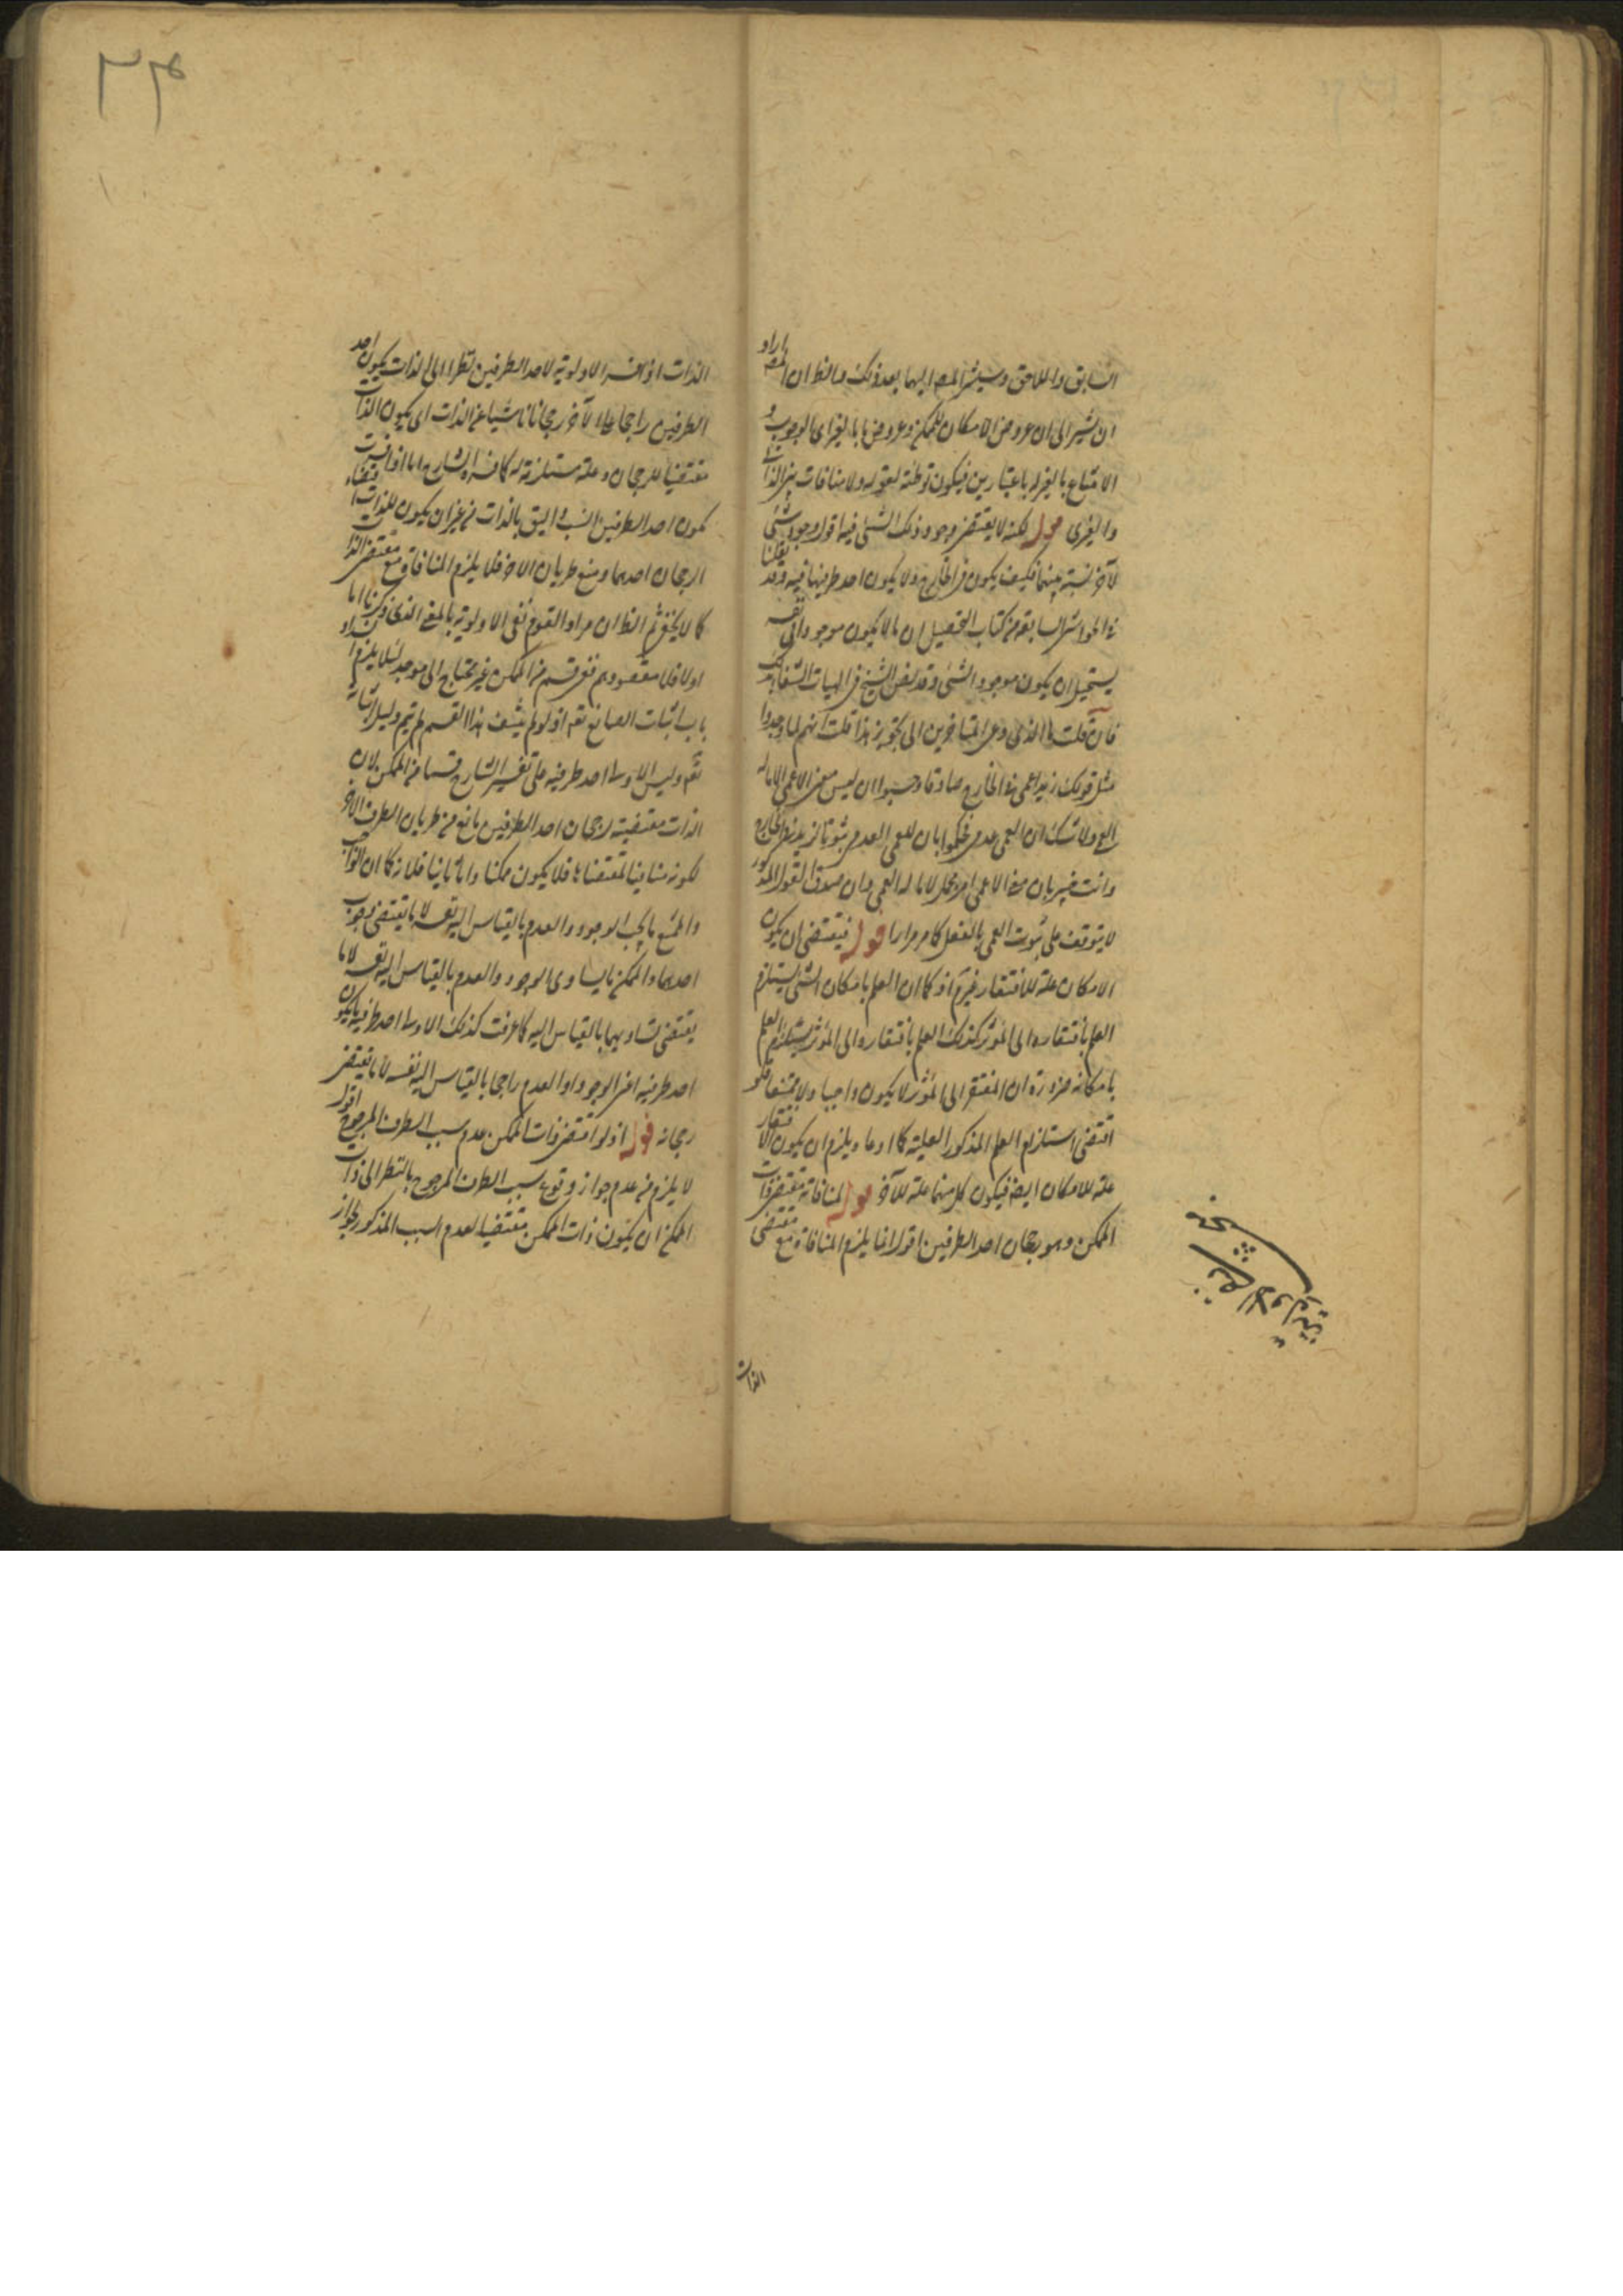 السابق واللاحق وسيشير المص اليهما بعد ذلك والظ ان المص اراد
ان يشير الى ان عروض الامكان للممكن وعروض ما بالغير اى الوجوب و
الامتناع بالغير له باعتبارين فيكون توطئة لقوله ولا منافات بين الذاتى
والغيرى قوله لكنه لا يقتضى وجود ذلك الشئ فيه اقول وجود شئ
لآخر نسبة بينهما فكيف يكون فى الخارج ولا يكون احد طرفيها فيه وقد نقلنا
فى الحواشى السابقة من كتاب التحصيل ان ما لا يكون موجودا فى نفسه
يستحيل ان يكون موجودا لشئ وقد نص الشيخ فى الهيات الشفا بذلك
فان قلت ما الذى دعى المتاخرين الى تجويز هذا قلت انهم لما وجدوا
مثل قولك زيد اعمى فى الخارج صادقا وحسبوا ان ليس معنى الاعمى الا ما له
العمى ولا شك ان العمى عدمى فحكموا بان للعمى العدمى ثبوتا لزيد فى الخارج
وانت خبير بان معنى الاعمى امر مجمل لا ما له العمى وان صدق القول المذكور
لا يتوقف على ثبوت العمى بالفعل كما مر مرارا قوله فيقتضى ان يكون
الامكان علة للافتقار غير آخر كما ان العلم بامكان الشئ يستلزم
العلم بافتقاره الى المؤثر كذلك العلم بافتقاره الى المؤثر يستلزم العلم
بامكانه ضرورة ان المفتقر الى المؤثر لا يكون واجبا ولا ممتنعا فلو
اقتضى استلزام العلم المذكور العلية كما ادعاه يلزم ان يكون الافتقار
علة للامكان ايضا فيكون كل منهما علة للآخر قوله لمنافاته مقتضى ذات
الممكن وهو رجحان احد الطرفين اقول انما يلزم المنافاة مع مقتضى
الذات
الذات اذا فسر الاولوية لاحد الطرفين نظرا الى الذات بكون احد
الطرفين راجحا على الآخر رجحانا ناشيا عن الذات اى يكون الذات
مقتضيا للرجحان وعلة مستلزمة له كما فسره الشارح اما اذا فسرت
بكون احد الطرفين انسب و اليق بالذات من غير ان يكون للذات اقتضاء
لرجحان احدهما ومنع طريان الآخر فلا يلزم المنافاة مع مقتضى الذات
كما لا يخفى ثم الظ ان مراد القوم نفى الاولوية بالمعنى الذى ذكرنا اما
اولا فلان مقصودهم نفى قسم من الممكن غير محتاج الى موجد لئلا يلزم انسداد
باب اثبات الصانع تعه اذ لو لم ينتف هذا القسم لم يتم دليل اثباته
تعه وليس الاولى احد طرفيه على تفسير الشارح قسما من الممكن لان
الذات مقتضية لرجحان احد الطرفين مانع من طريان الطرف الآخر
لكونه منافيا لمقتضاها فلا يكون ممكنا واما ثانيا فلانه كما ان الواجب
والممتنع ما يجب الوجود والعدم بالقياس اليه نفسه لا ما يقتضى وجوب
احدهما والممكن ما يساوى الوجود والعدم بالقياس اليه نفسه لا ما
يقتضى تساويهما بالقياس اليه كما عرفت كذلك الاولى احد طرفيه ما يكون
احد طرفيه اعنى الوجود او العدم راجحا بالقياس اليه نفسه لا ما يقتضى
رجحانه قوله اذ لو اقتضى ذات الممكن عدم سبب الطرف المرجوح اقول
لا يلزم من عدم جواز وقوع سبب الطرف المرجوح بالنظر الى ذات
الممكن ان يكون ذات الممكن مقتضيا لعدم السبب المذكور لجواز